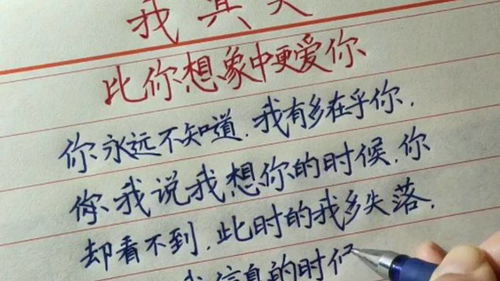 我其实
比你想象中更爱你
你永远不知道,我有多在乎你,
你,我说我想你的时候,你
却看不到,此时的我多失落,
信息的时候